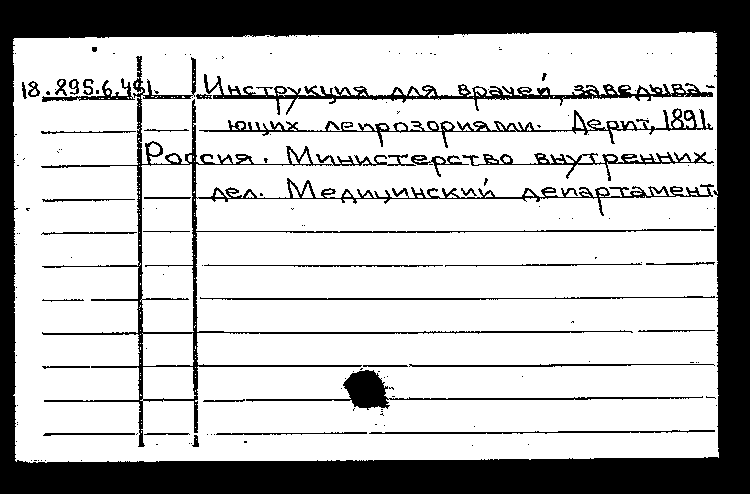 18.295.6.451. Инструкция для врачей, заведыва-
ющих лепрозориями. Дерпт, 1891.
Россия. Министерство внутренних
дел. Медицинский департамент.